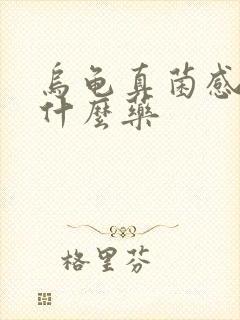 烏龟真菌感
什麼藥
格里芬